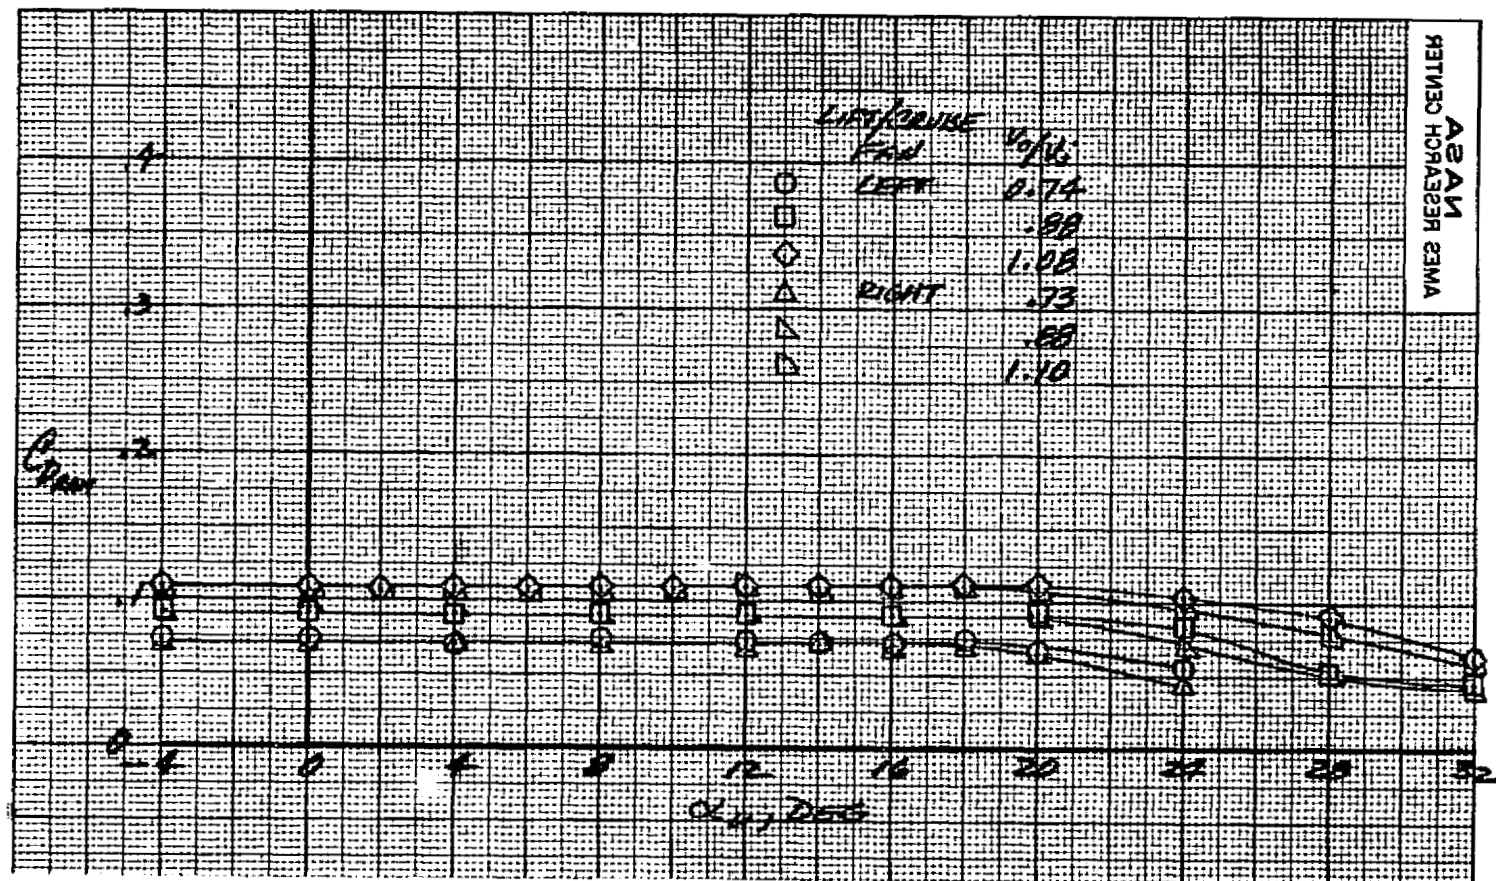 NASA
AMES RESEARCH CENTER
LIFT/CRUISE
FAN V₀/Vⱼ
LEFT 0.74
.88
1.08
RIGHT .73
.88
1.10
.4
.3
.2
.1
0
C_DRAM
-4 0 4 8 12 16 20 24 28 32
α_u, DEG